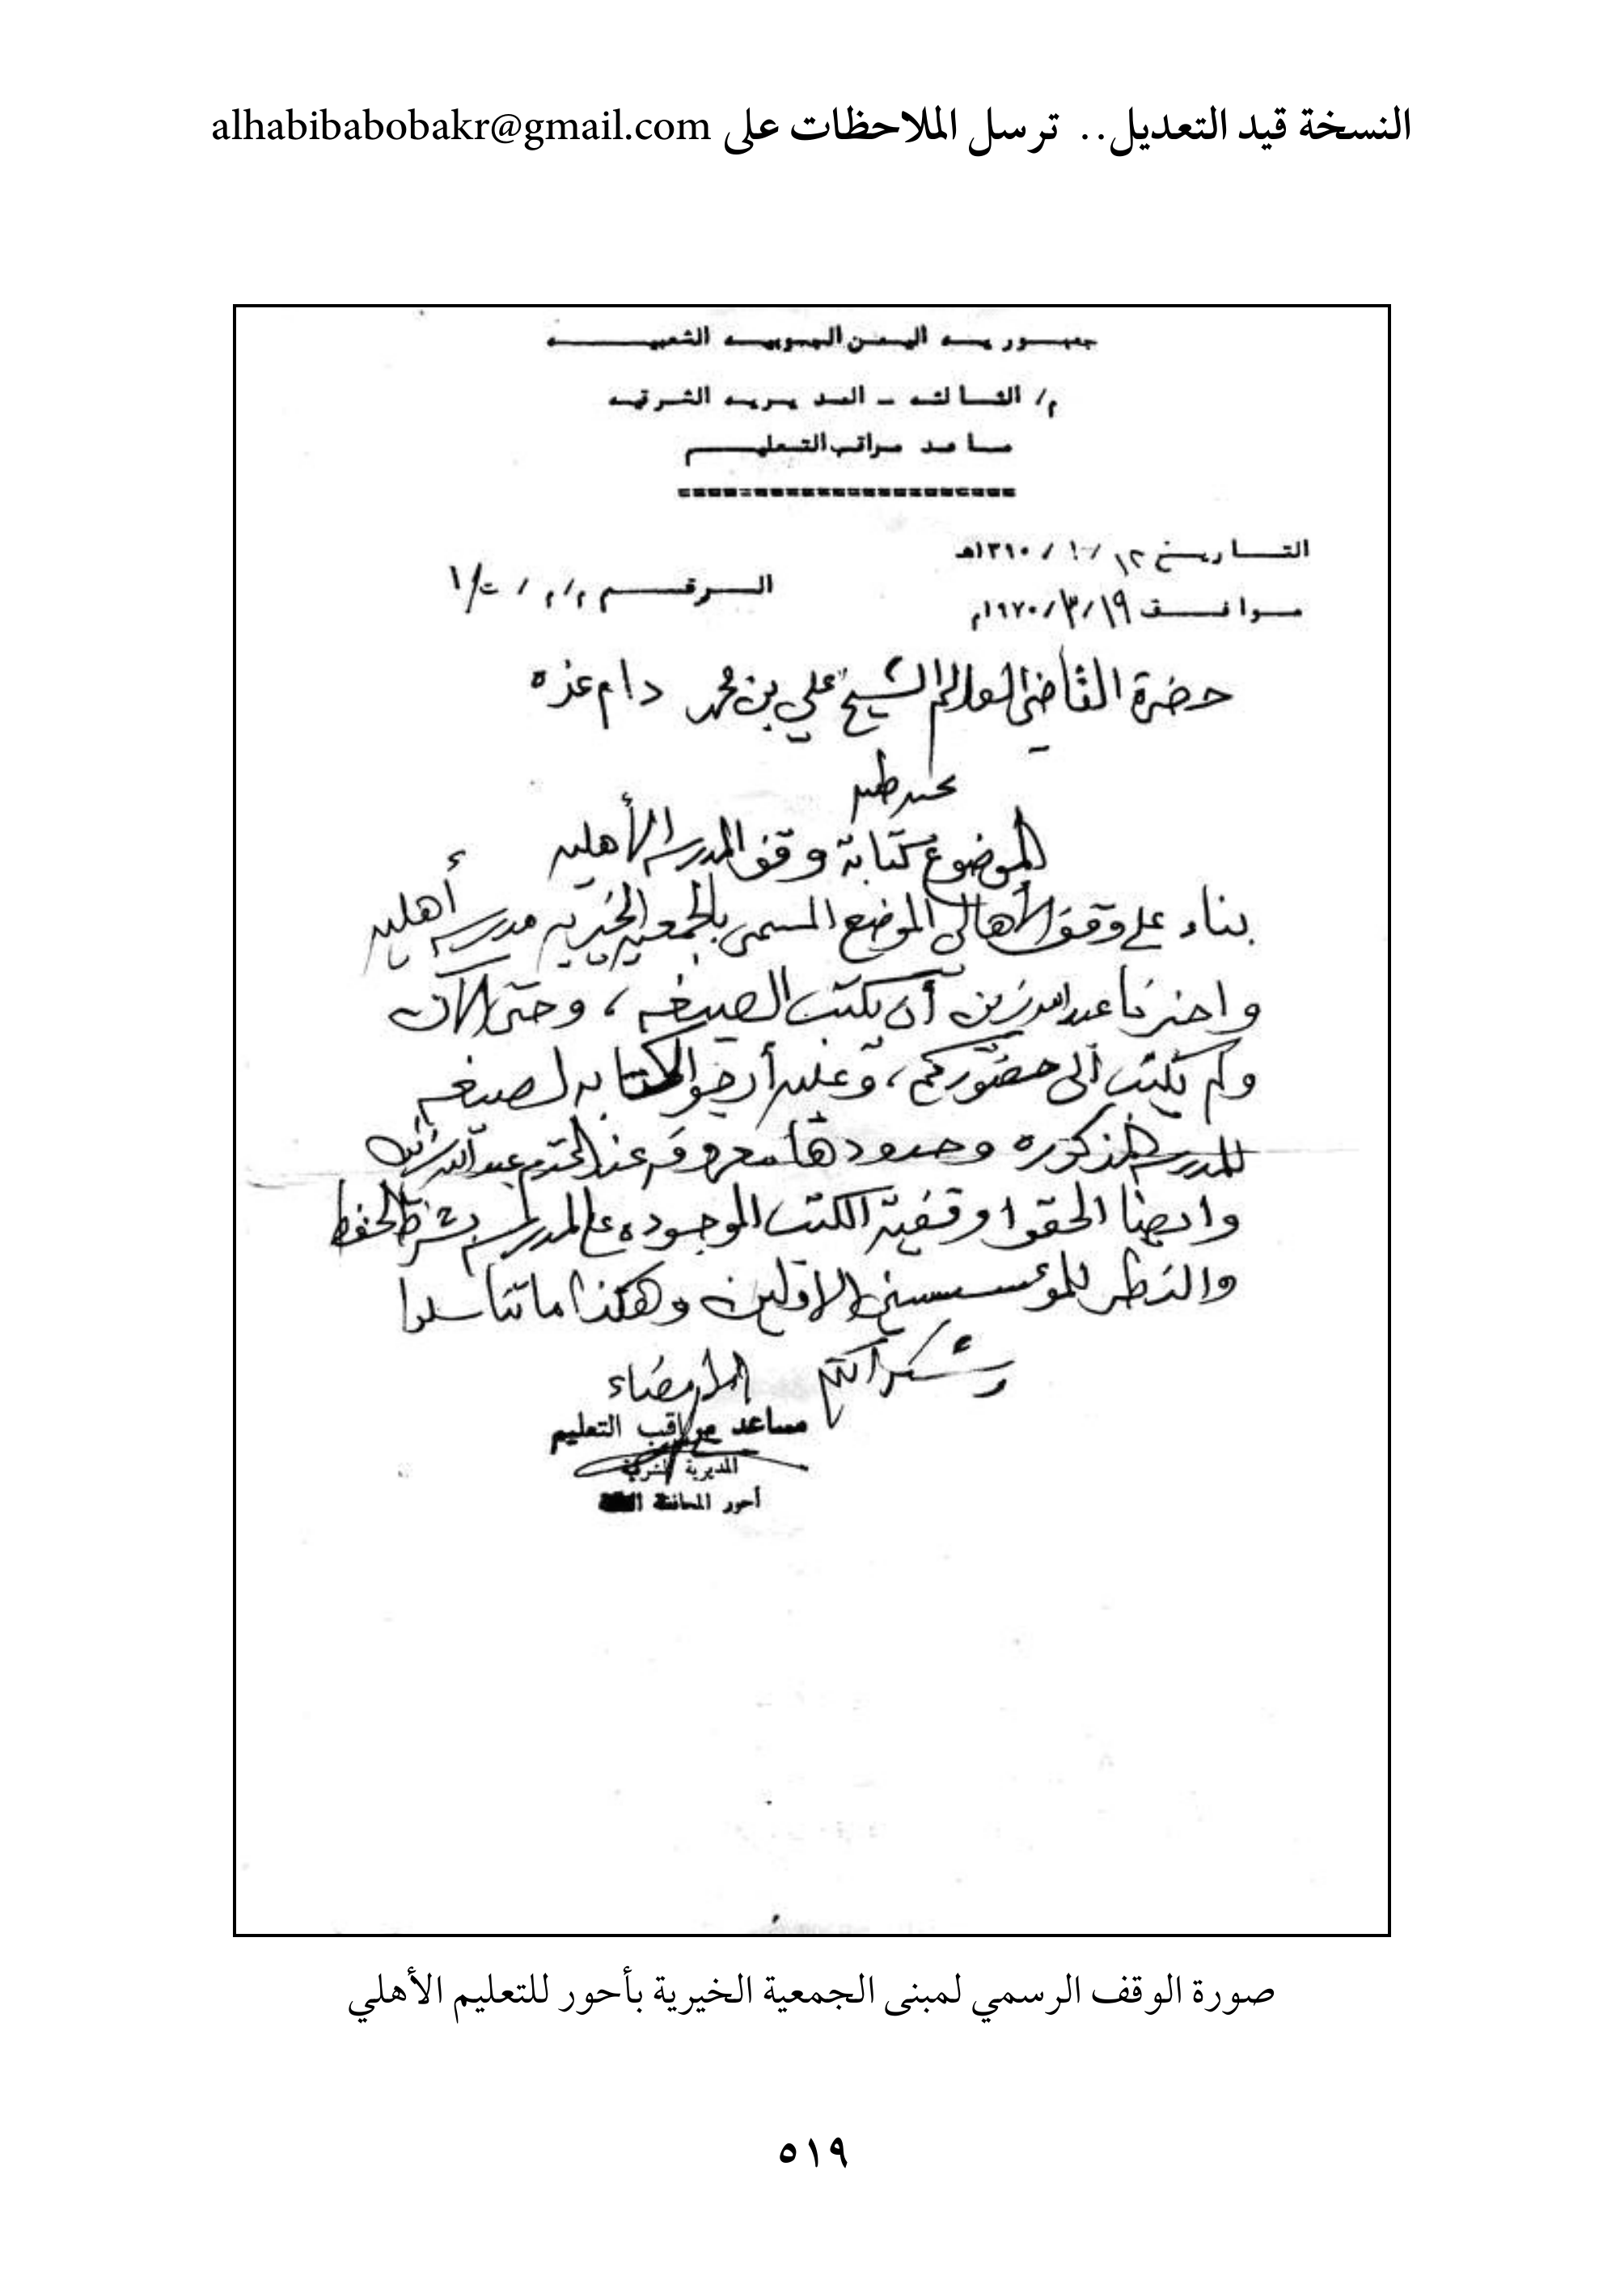 النسخة قيد التعديل.. ترسل الملاحظات على alhabibabobakr@gmail.com
جمهوريه اليمن الجنوبيه الشعبيه
م/ الثالثه - المديريه الشرقيه
مساعد مراقب التعليم
التاريخ ١٢/ ١٠/ ١٣٩٠هـ
موافق ١٩/ ٣/ ١٩٧٠م
الرقم م/م / ت/١
حضرة القاضي العالم الشيخ علي بن محمد دام عزه
الموضوع كتابة وقف المدرسه الأهليه
بناء على وقف الأهالي الموضع المسمى بالجمعيه الخيريه مدرسه أهليه
واخبرنا عبدالله بن أن يكتب الصيغه ، وحتى الآن
ولم يكتب الى حضوركم ، وعليه أرجو الكتابه لصيغه
للمدرسه المذكوره وحدودها معروفه عند المحترم عبدالله
وايضا الحقوا وقفية الكتب الموجوده على المدرسه بشرط الحفظ
والنظر للمؤسسين الاولين وهكذا ما تناسلوا
وشكرا لكم الإمضاء
مساعد مراقب التعليم
المديرية الشرقية
أحور المحافظة
صورة الوقف الرسمي لمبنى الجمعية الخيرية بأحور للتعليم الأهلي
٥١٩